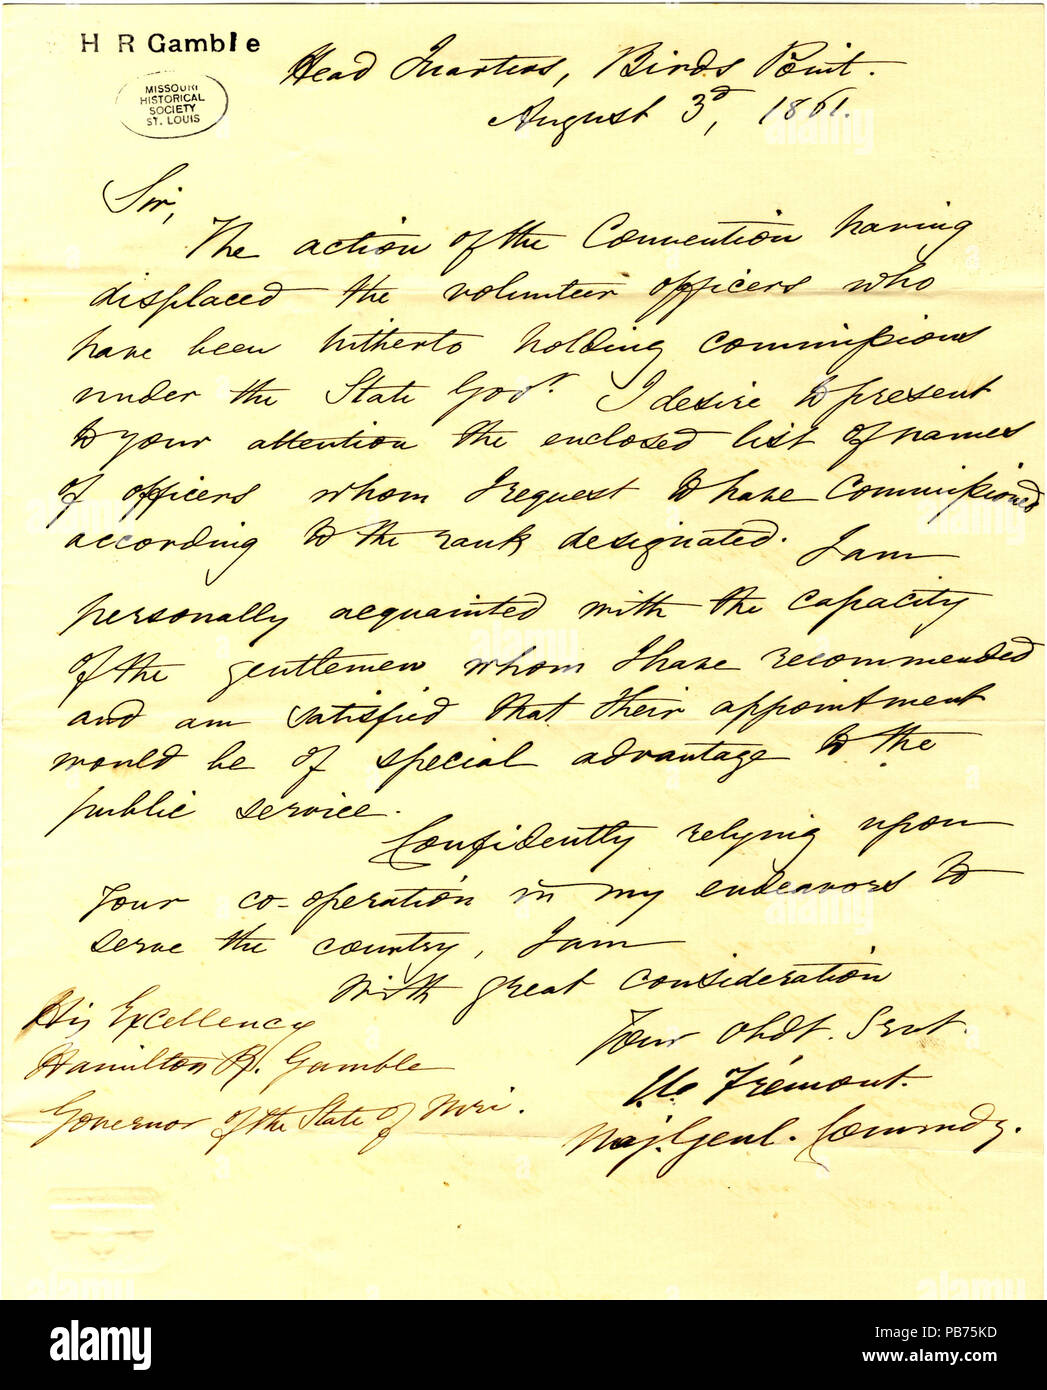 H R Gamble
MISSOURI
HISTORICAL
SOCIETY
ST. LOUIS
Head Quarters, Birds Point.
August 3d, 1861.
Sir,
The action of the Convention having
displaced the volunteer officers who
have been hitherto holding commissions
under the State Govt. I desire to present
to your attention the enclosed list of names
of officers whom I request to have Commissioned
according to the rank designated. I am
personally acquainted with the capacity
of the gentlemen whom I have recommended
and am satisfied that their appointment
would be of special advantage to the
public service.
Confidently relying upon
Your co-operation in my endeavors to
serve the country, I am
With great consideration
Your Obdt. Servt.
Frémont.
Maj. Genl. Commndg.
His Excellency
Hamilton R. Gamble
Governor of the State of Miri.
alamy
Image ID: PB75KD
www.alamy.com